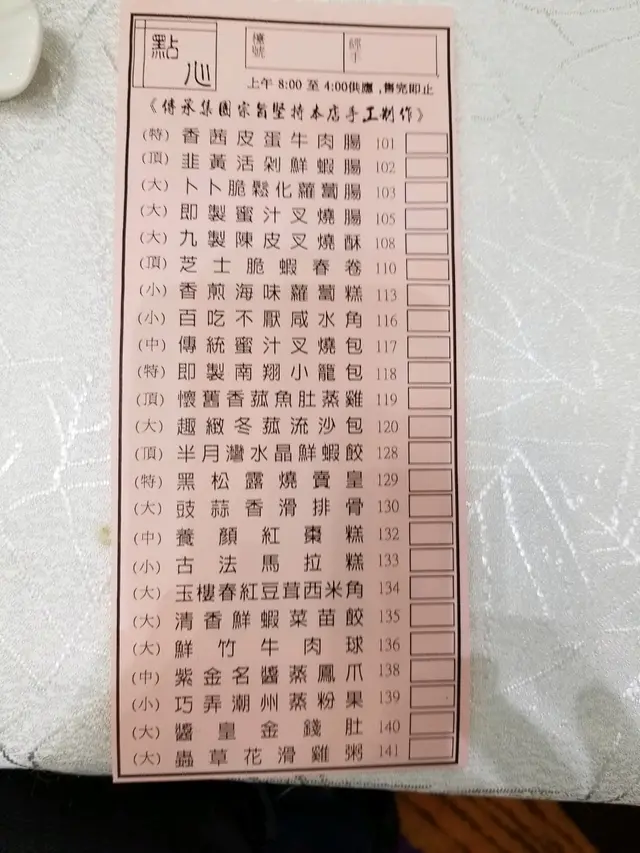 點心
檯號
經手
上午 8:00 至 4:00供應，售完即止
《傳承集團宗旨堅持本店手工制作》
(特) 香茜皮蛋牛肉腸 101
(頂) 韭黃活剁鮮蝦腸 102
(大) 卜卜脆鬆化蘿蔔腸 103
(大) 即製蜜汁叉燒腸 105
(大) 九製陳皮叉燒酥 108
(頂) 芝士脆蝦春卷 110
(小) 香煎海味蘿蔔糕 113
(小) 百吃不厭咸水角 116
(中) 傳統蜜汁叉燒包 117
(特) 即製南翔小籠包 118
(頂) 懷舊香菰魚肚蒸雞 119
(大) 趣緻冬菰流沙包 120
(頂) 半月灣水晶鮮蝦餃 128
(特) 黑松露燒賣皇 129
(大) 豉蒜香滑排骨 130
(中) 養顏紅棗糕 132
(小) 古法馬拉糕 133
(大) 玉樓春紅豆茸西米角 134
(大) 清香鮮蝦菜苗餃 135
(大) 鮮竹牛肉球 136
(中) 紫金名醬蒸鳳爪 138
(小) 巧弄潮州蒸粉果 139
(大) 醬皇金錢肚 140
(大) 蟲草花滑雞粥 141